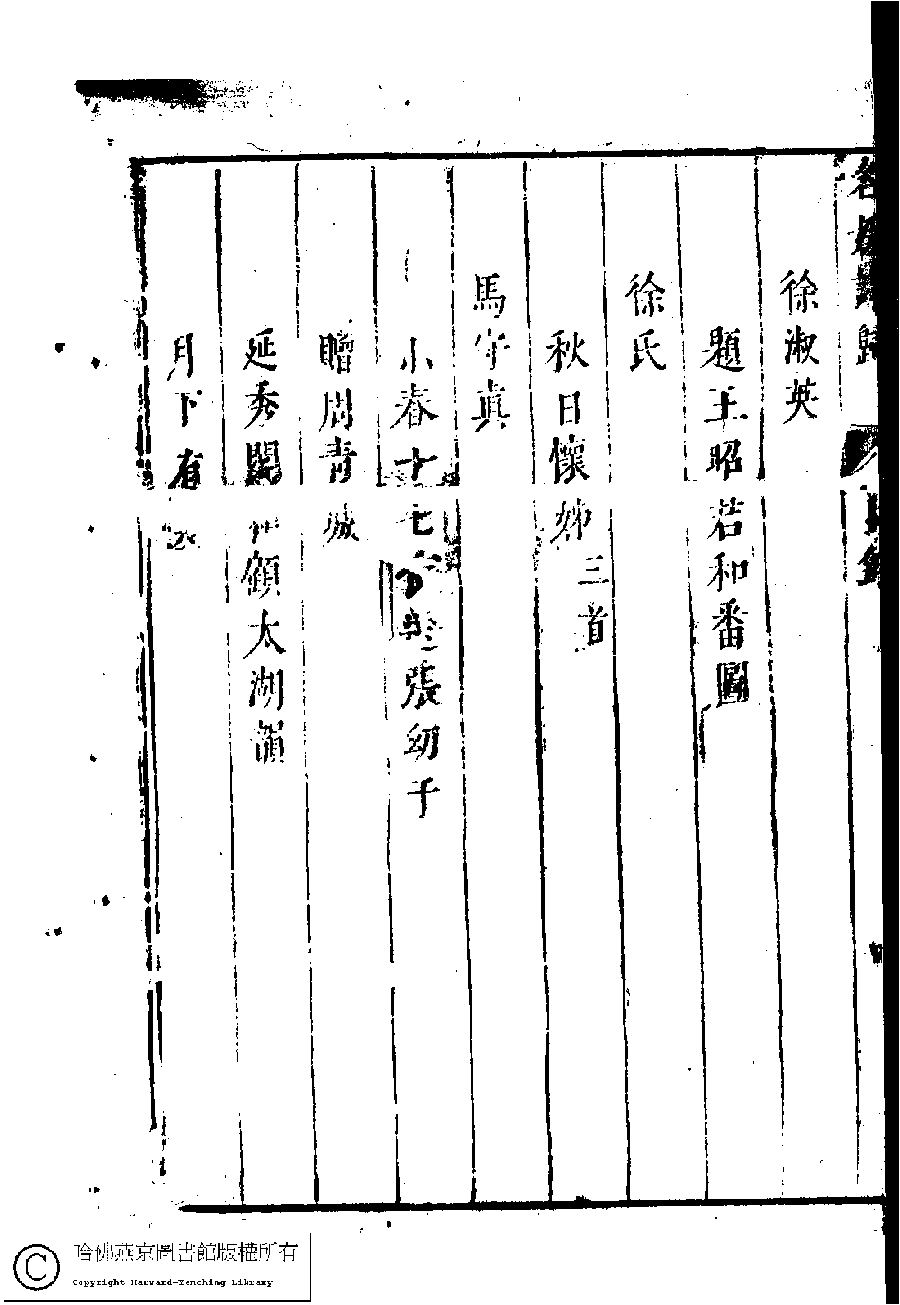 徐淑英
題王昭君和番圖
徐氏
秋日懷姊三首
馬守真
小春十七張幼于
贈周青城
延秀閣和顧太湖韻
月下有
哈佛燕京圖書館版權所有
Copyright Harvard-Yenching Library